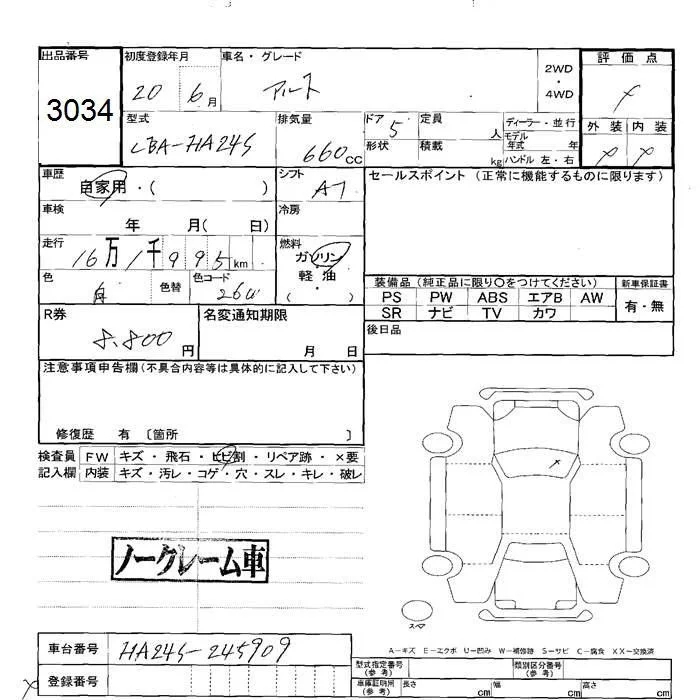 出品番号 初度登録年月 車名・グレード 2WD ・ 4WD 評価点
3034 20 6月 アルト
外装 内装
型式 排気量 ドア 5 定員 人 ディーラー・並行
モデル年式 年
LBA-HA24S 660cc 形状 積載 kg ハンドル 左・右
車歴 自家用・( ) シフト AT セールスポイント (正常に機能するものに限ります)
車検 年 月( 日) 冷房
走行 16万1千995km 燃料 ガソリン
軽・油
( )
色 白 色替 色コード 26U
装備品 (純正品に限り〇をつけてください) 新車保証書
PS PW ABS エアB AW 有・無
SR ナビ TV カワ
R券 8.800円 名変通知期限 月 日 後日品
注意事項申告欄(不具合内容等は具体的に記入して下さい)
修復歴 有 〔箇所 〕
検査員 FW キズ・飛石・ヒビ割・リペア跡・×要
記入欄 内装 キズ・汚レ・コゲ・穴・スレ・キレ・破レ
ノークレーム車
スペア
A-キズ E-エクボ U-凹み W-補修跡 S-サビ C-腐食 XX-交換済
車台番号 HA24S-245909 型式指定番号 (参考) 類別区分番号 (参考)
登録番号 車庫証明用 (参考) 長さ cm 幅 cm 高さ cm